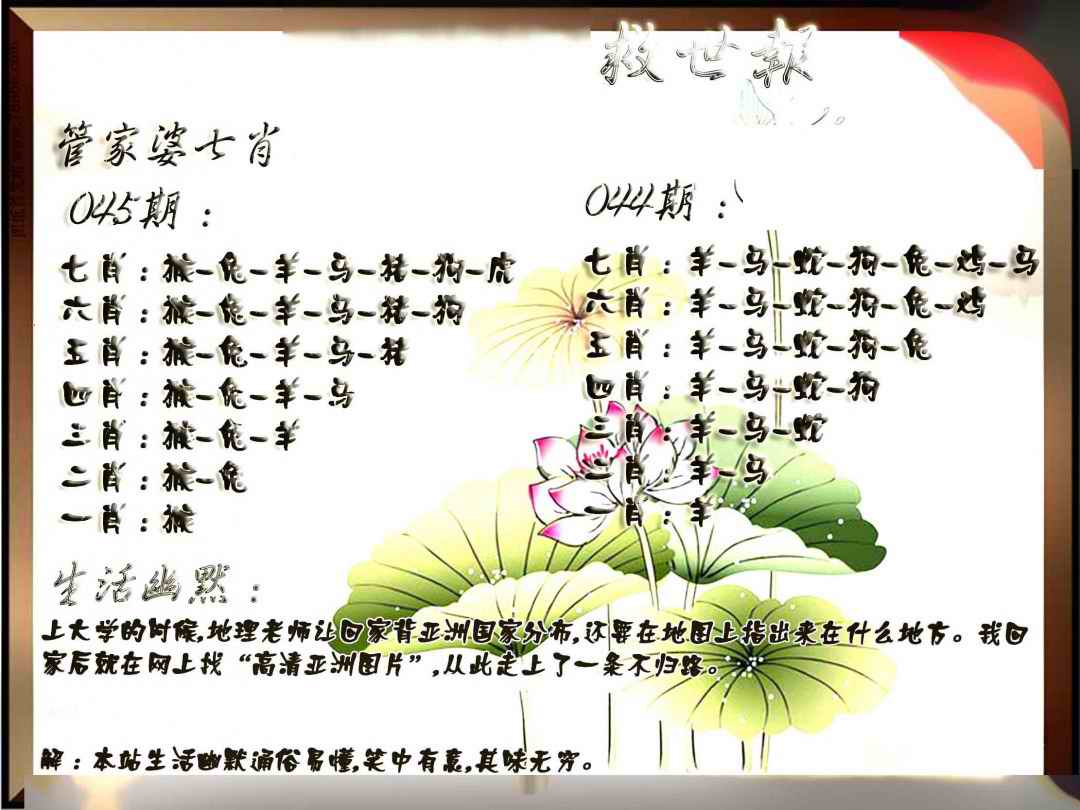 救世報
管家婆七肖
045期：
七肖：猴-兔-羊-马-猪-狗-虎
六肖：猴-兔-羊-马-猪-狗
五肖：猴-兔-羊-马-猪
四肖：猴-兔-羊-马
三肖：猴-兔-羊
二肖：猴-兔
一肖：猴
044期：
七肖：羊-马-蛇-狗-兔-鸡-马
六肖：羊-马-蛇-狗-兔-鸡
五肖：羊-马-蛇-狗-兔
四肖：羊-马-蛇-狗
三肖：羊-马-蛇
二肖：羊-马
一肖：羊
生活幽默：
上大学的时候,地理老师让回家背亚洲国家分布,还要在地图上指出来在什么地方。我回
家后就在网上找“高清亚洲图片”,从此走上了一条不归路。
解：本站生活幽默通俗易懂,笑中有意,其味无穷。